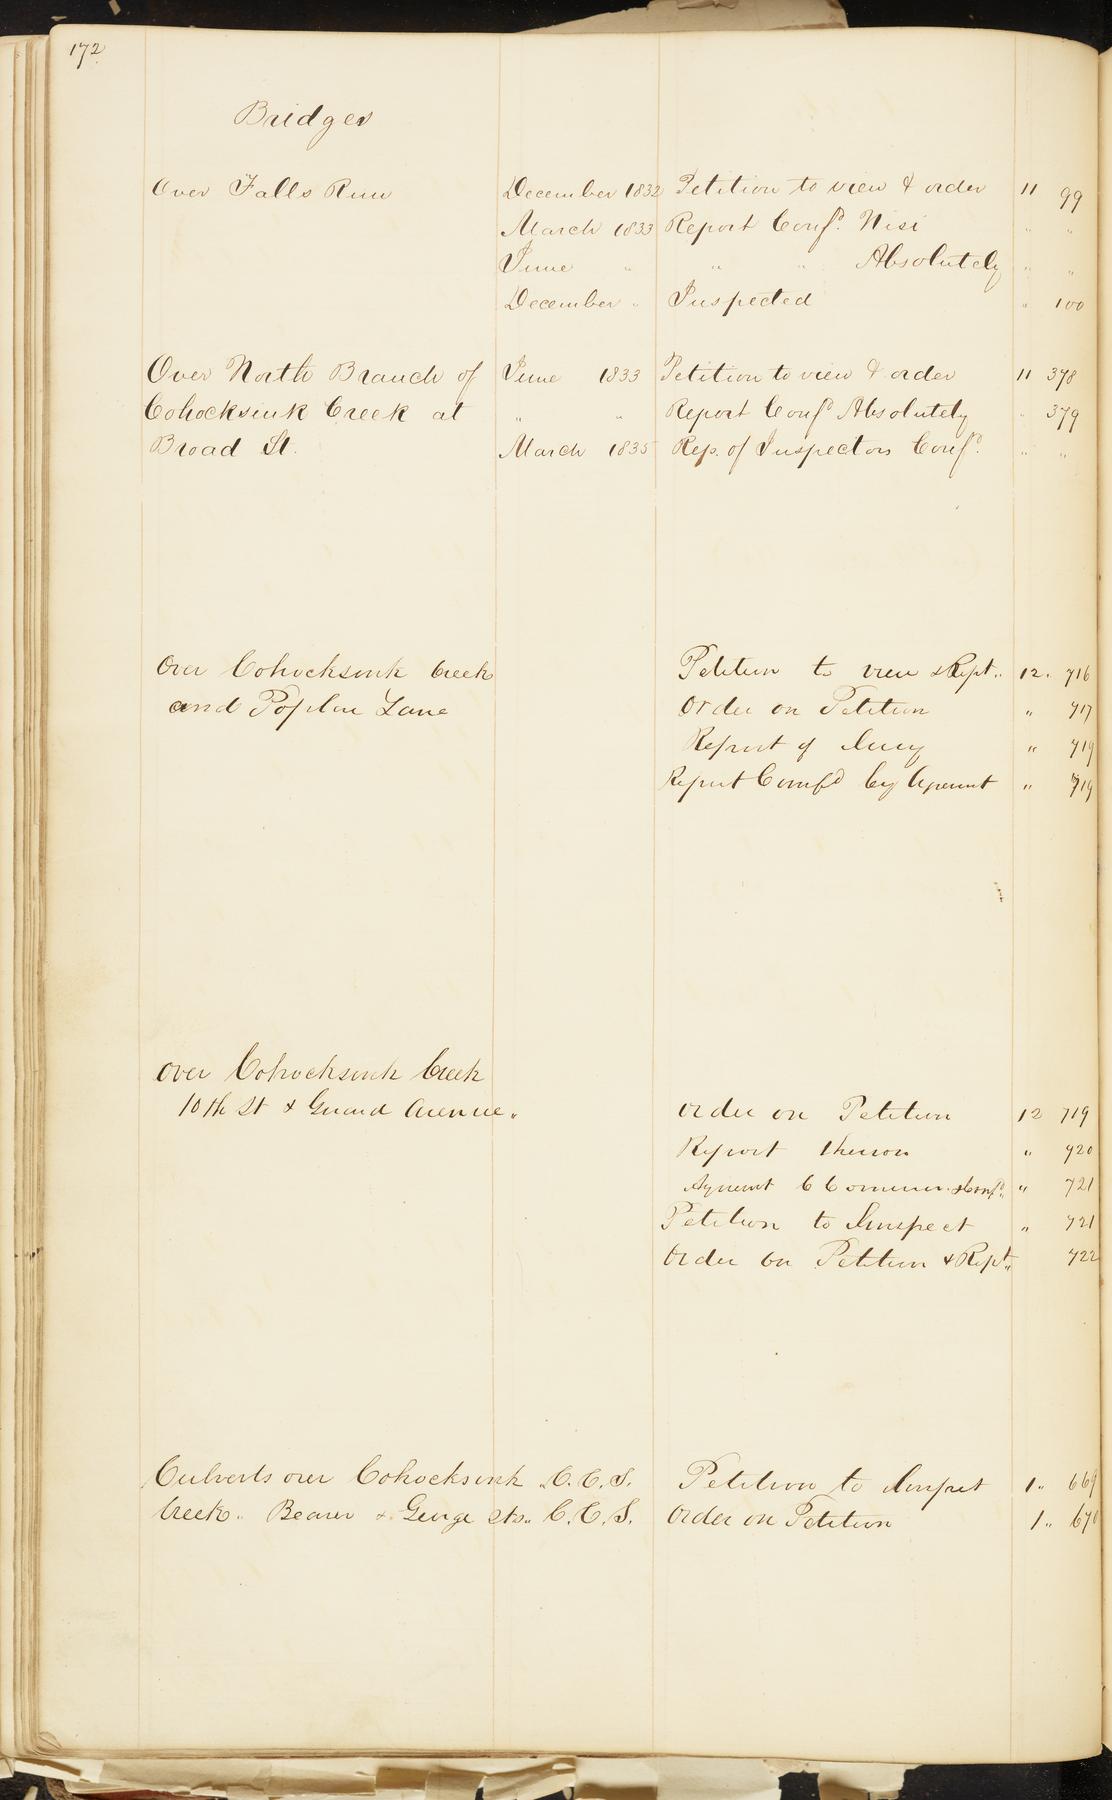 172
Bridges
Over Falls Run December 1832 Petition to view & order 11 99
March 1833 Report Conf.d Nisi " "
June " " " Absolutely " "
December " Inspected " 100
Over North Branch of June 1833 Petition to view & order 11 378
Cohocksink Creek at " " Report Conf.d Absolutely " 379
Broad St. March 1835 Rep. of Inspectors Conf.d " "
Over Cohocksink Creek Petition to view & Rept. 12. 716
and Poplar Lane Order on Petition " 717
Report of Jury " 719
Report Comf.d by Agremnt " 719
Over Cohocksink Creek
10th St & Girard Avenue. Order on Petition 12 719
Report thereon " 720
Agremnt Commrs. & Conf.d " 721
Petition to Innspect " 721
Order on Petition & Rept. 722
Culverts over Cohocksink .C.C.S. Petition to Inspect 1.. 669
Creek.. Beaver & George Sts.. C.C.S. Order on Petition 1.. 670